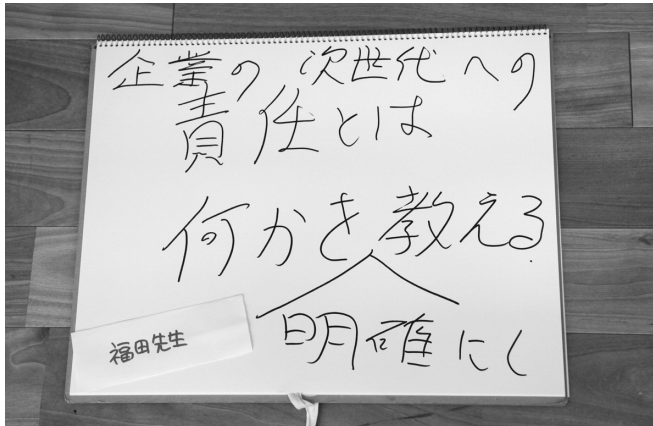 企業の 次世代への
責任とは
何かを教える
明確にし
福田先生